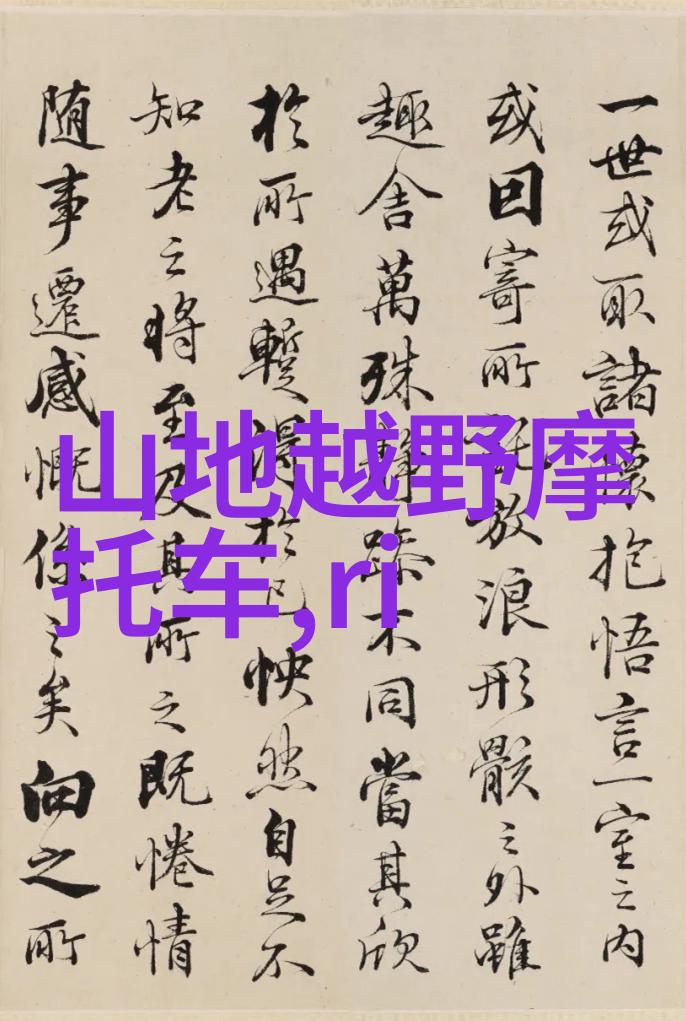 一世或取諸懷抱悟言一室之内
或因寄所託放浪形骸之外雖
趣舍萬殊靜躁不同當其欣
於所遇暫得於己怏然自足不
知老之將至及其所之既惓情
随事遷感慨係之矣向之所
山地越野摩
托车,ri